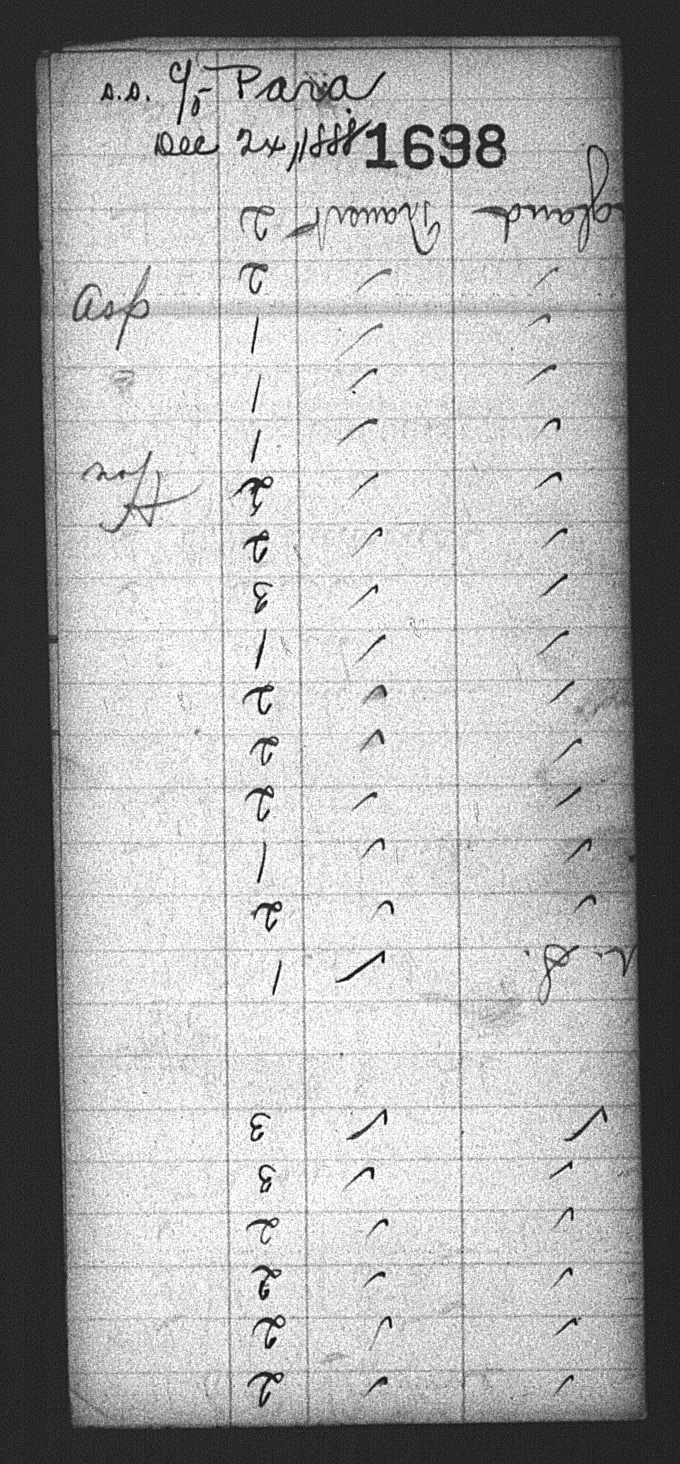 S.S. C/o Para
Dec 24, 1888 1698
2 Traveler gland
2 ✓ ✓
Asp
1 ✓ ✓
1 ✓ ✓
1 ✓ ✓
2 ✓ ✓
2 ✓ ✓
3 ✓ ✓
1 ✓ ✓
2 ✓ ✓
2 ✓ ✓
2 ✓ ✓
1 ✓ ✓
2 ✓ ✓
1 ✓ U. S.
3 ✓ ✓
3 ✓ ✓
2 ✓ ✓
2 ✓ ✓
2 ✓ ✓
2 ✓ ✓